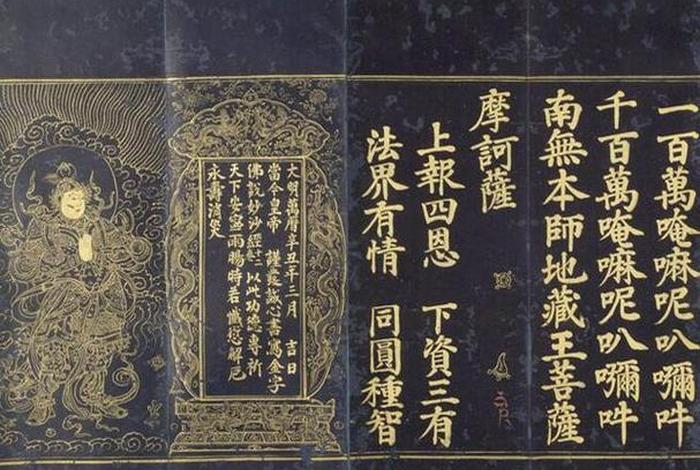 一百萬唵嘛呢叭彌吽
千百萬唵嘛呢叭彌吽
南無本師地藏王菩薩
摩訶薩
上報四恩 下資三有
法界有情 同圓種智
大明萬曆辛丑年三月 吉日
當今皇帝 謹發誠心書寫金字
佛說妙沙經 以此功德專祈
天下安寧雨暘時若懺愆解厄
永壽消災